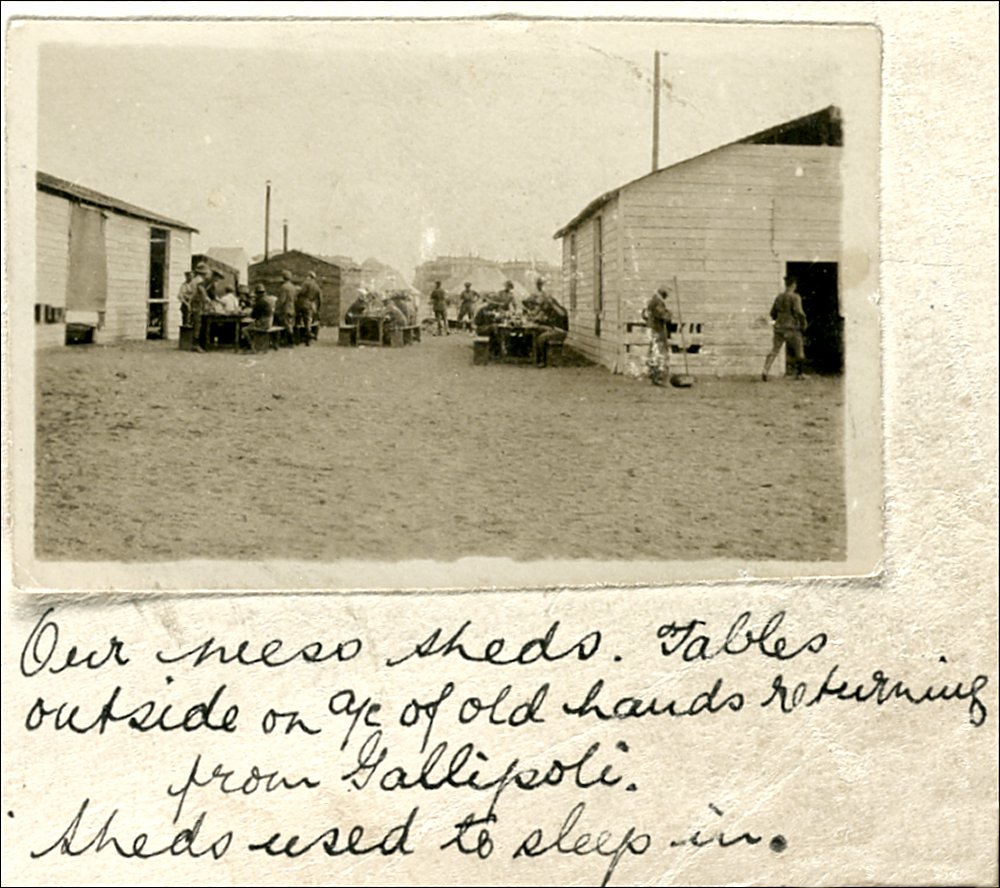 Our mess sheds. Tables
outside on a/c of old hands returning
from Gallipoli.
Sheds used to sleep in.